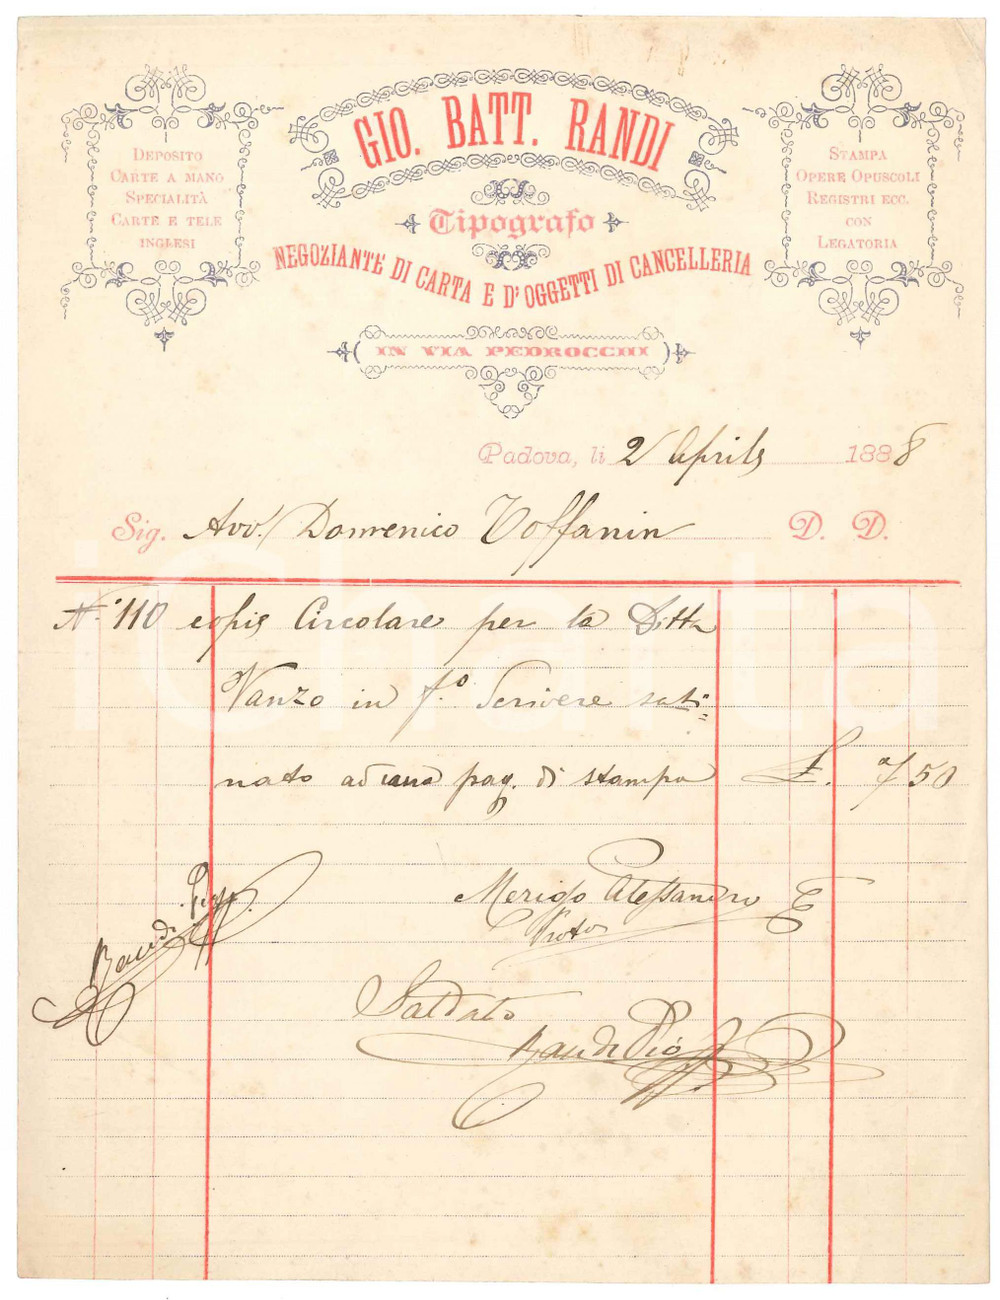 GIO. BATT. RANDI
Tipografo
NEGOZIANTE DI CARTA E D'OGGETTI DI CANCELLERIA
IN VIA PEDROCCHI
DEPOSITO
CARTE A MANO
SPECIALITÀ
CARTE E TELE
INGLESI
STAMPA
OPERE OPUSCOLI
REGISTRI ECC.
CON
LEGATORIA
Padova, li 2 Aprile 1888
Sig. Avv. Domenico Toffanin D. D.
N.° 110 copie Circolare per la Ditta
Vanzo in f.° Scrivere sati=
nato ad una pag. di stampa £. 7/50
Merigo Alessandro
Proto
Randi
Saldato
Randi Pio
iCharta